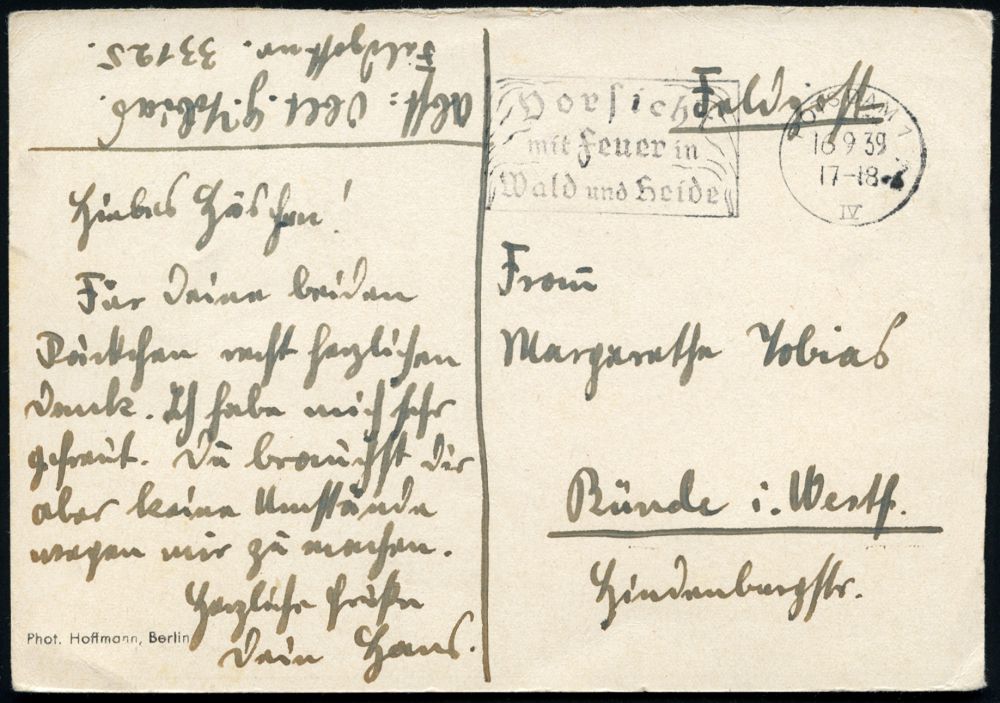 H. Tobias.
Feldpostnr. 33125.
Liebes Häschen!
Für deine beiden
Päckchen recht herzlichen
Dank. Ich habe mich sehr
gefreut. Du brauchst dir
aber keine Umstände
wegen mir zu machen.
Herzliche Grüße
Dein Hans.
Phot. Hoffmann, Berlin
Feldpost
Vorsicht
mit Feuer in
Wald und Heide
POTSDAM 1
16.9.39
17-18
IV
Frau
Margarethe Tobias
Bünde i. Westf.
Hindenburgstr.